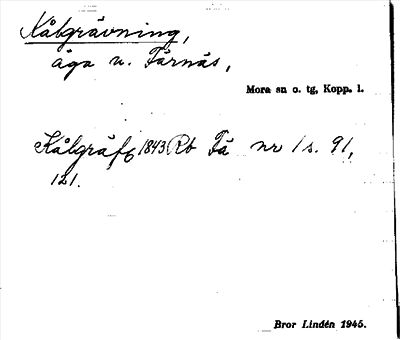 Kålgrävning,
äga u. Färnäs,
Mora sn o. tg, Kopp. l.
Kålgräf 1843 Rb Fä nr 1 s. 91,
121.
Bror Lindén 1945.